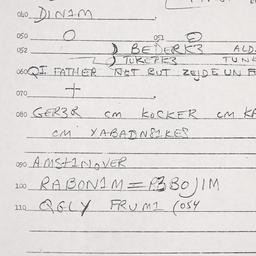 040 DIN1M
050
052 ) BEDERK3 ALD
TURKEK3 TUN
060 QI FATHER NOT BUT ZEJDE UN F
070
080 GER3R CM KOCKER CM KA
CM YABADN81KES
090 AMST1NOVER
100 RABON1M = P3BOJIM
110 QGLY FRUM1 (054